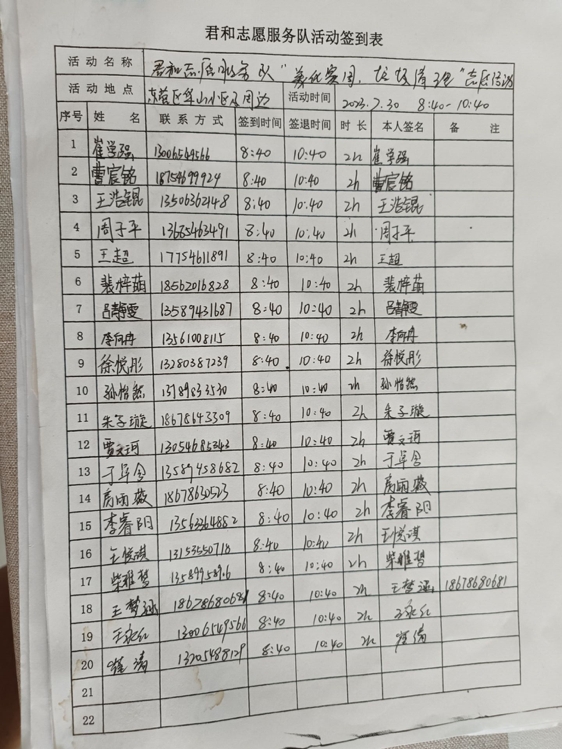 君和志愿服务队活动签到表
活动名称 君和志愿服务队“美化家园，垃圾清理”志愿活动
活动地点 东营区华山小区及周边 活动时间 2023.7.30 8:40-10:40
序号 姓名 联系方式 签到时间 签退时间 时长 本人签名 备注
1 崔学强 13006549566 8:40 10:40 2h 崔学强
2 曹宸铭 18754699929 8:40 10:40 2h 曹宸铭
3 王浩锟 13506362148 8:40 10:40 2h 王浩锟
4 周子平 13685463491 8:40 10:40 2h 周子平
5 王超 17754611891 8:40 10:40 2h 王超
6 裴梓茹 18562016828 8:40 10:40 2h 裴梓茹
7 吕静雯 13589431687 8:40 10:40 2h 吕静雯
8 李向冉 13561008115 8:40 10:40 2h 李向冉
9 徐悦彤 13280387239 8:40 10:40 2h 徐悦彤
10 孙怡然 8:40 10:40 2h 孙怡然
11 朱子璇 18678643309 8:40 10:40 2h 朱子璇
12 贾文珂 13054685343 8:40 10:40 2h 贾文珂
13 于阜含 13589458682 8:40 10:40 2h 于阜含
14 房雨薇 18678630523 8:40 10:40 2h 房雨薇
15 李睿阳 13563364882 8:40 10:40 2h 李睿阳
16 王悦淇 13153550718 8:40 10:40 2h 王悦淇
17 柴雅梦 8:40 10:40 2h 柴雅梦
18 王梦涵 18678680681 8:40 10:40 2h 王梦涵 18678680681
19 王永红 13006549566 8:40 10:40 2h 王永红
20 崔清 13205488129 8:40 10:40 2h 崔清
21
22